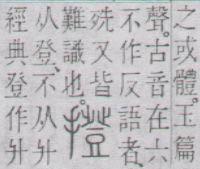 之或體。玉篇
聲。古音在六
不作反語者、
又皆
難識也。
撜
从登、不从升
經典登作升